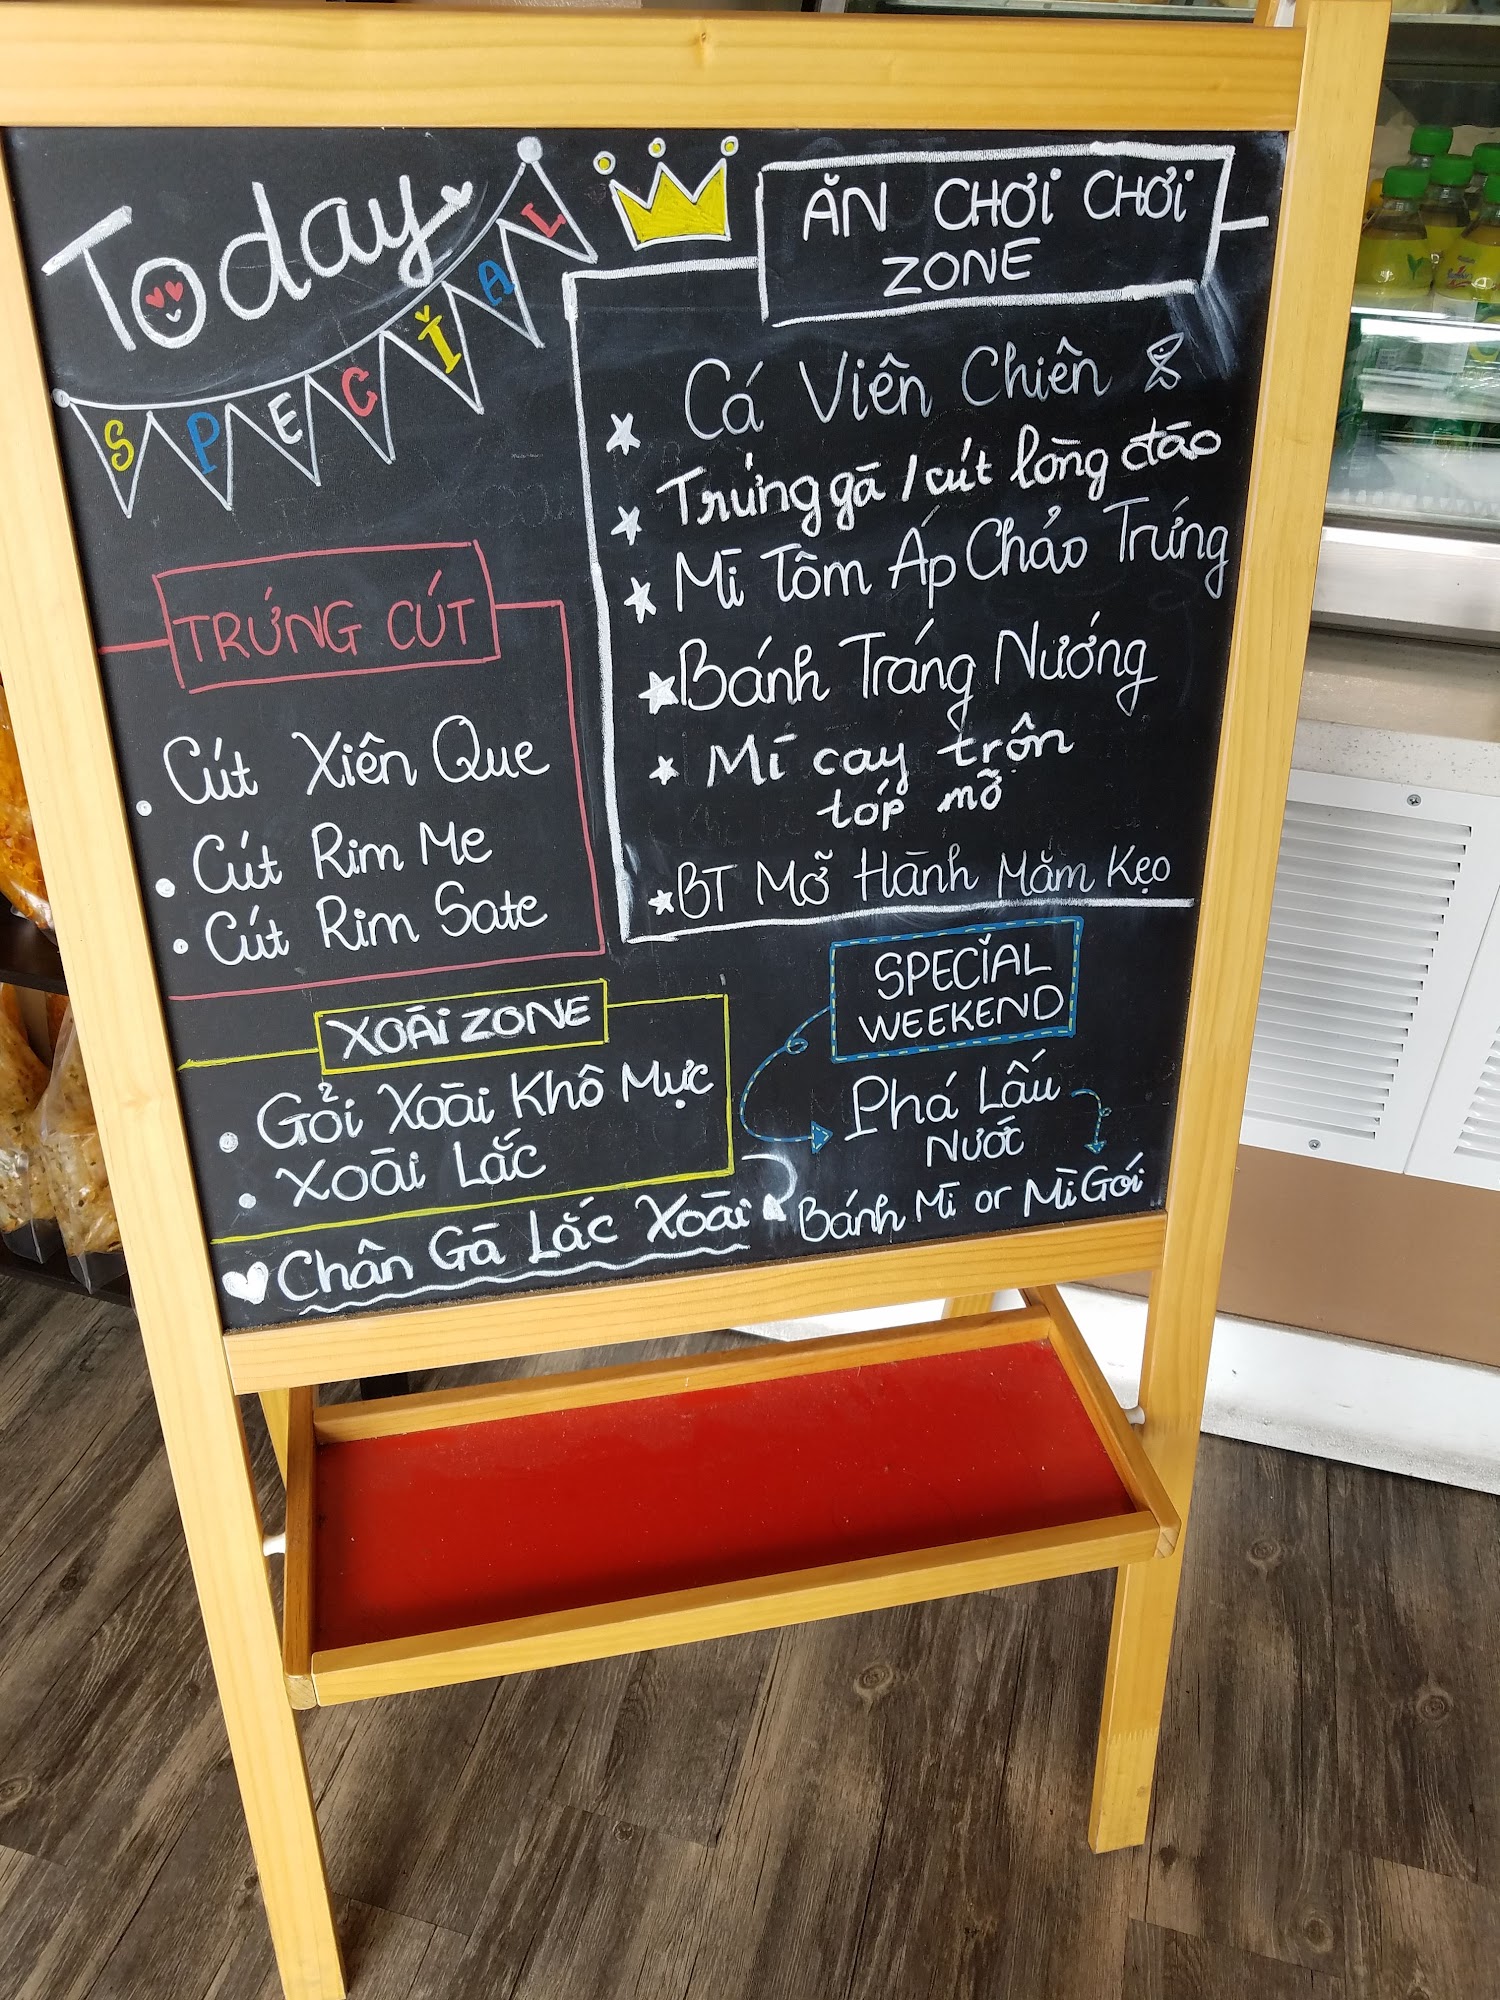 Today
SPECIAL
ĂN CHƠI CHƠI
ZONE
Cá Viên Chiên
Trứng gà / cút lòng đào
Mì Tôm Áp Chảo Trứng
Bánh Tráng Nướng
Mì cay trộn
tóp mỡ
BT Mỡ Hành Mắm Kẹo
TRỨNG CÚT
Cút Xiên Que
Cút Rim Me
Cút Rim Sate
XOÀI ZONE
Gỏi Xoài Khô Mực
Xoài Lắc
Chân Gà Lắc Xoài
SPECIAL
WEEKEND
Phá Lấu
Nước
Bánh Mì or Mì Gói